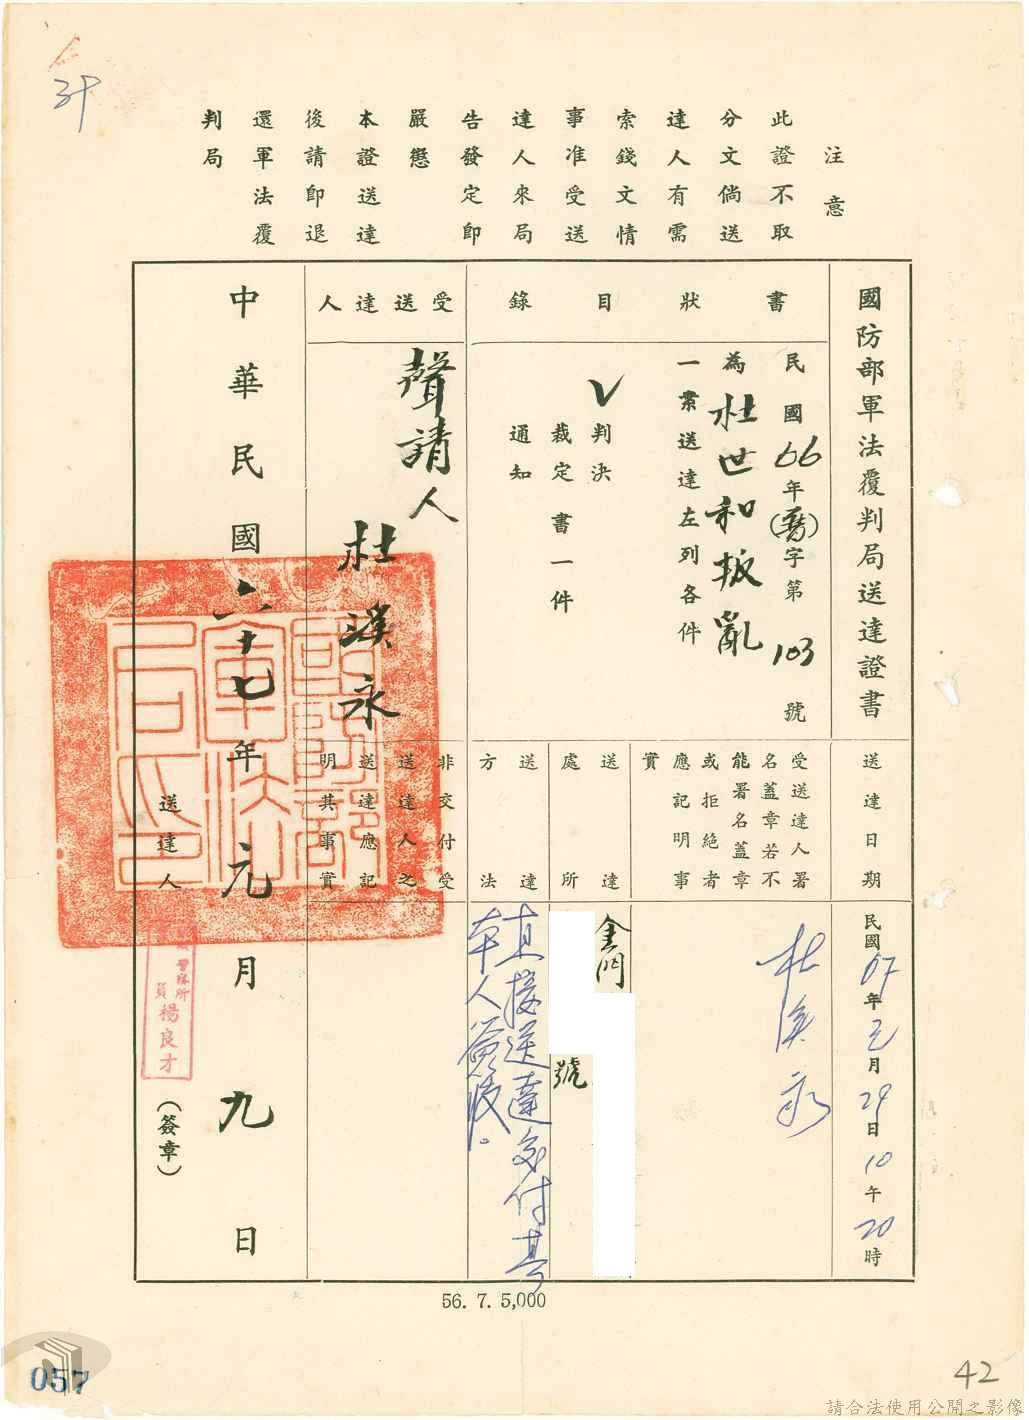 注意
此證不取
分文倘送
達人有需
索錢文情
事准受送
達人來局
告發定即
嚴懲
本證送達
後請即退
還軍法覆
判局
國防部軍法覆判局送達證書
書狀目錄
民國66年(覆)字第103號
為杜世和叛亂
一案送達左列各件
V判決
裁定書一件
通知
受送達人
聲請人
杜溪永
中華民國六十七年元月九日
送達日期
民國67年元月29日10午20時
受送達人署
名蓋章若不
能署名蓋章
或拒絕者
應記明事
實
杜溪永
送達處所
金門
號
送達方法
直接送達交付其
本人簽收。
非交付受
送達人之
送達應記
明其事實
送達人
警察所
員楊良才
(簽章)
56. 7. 5,000
057
42
請合法使用公開之影像